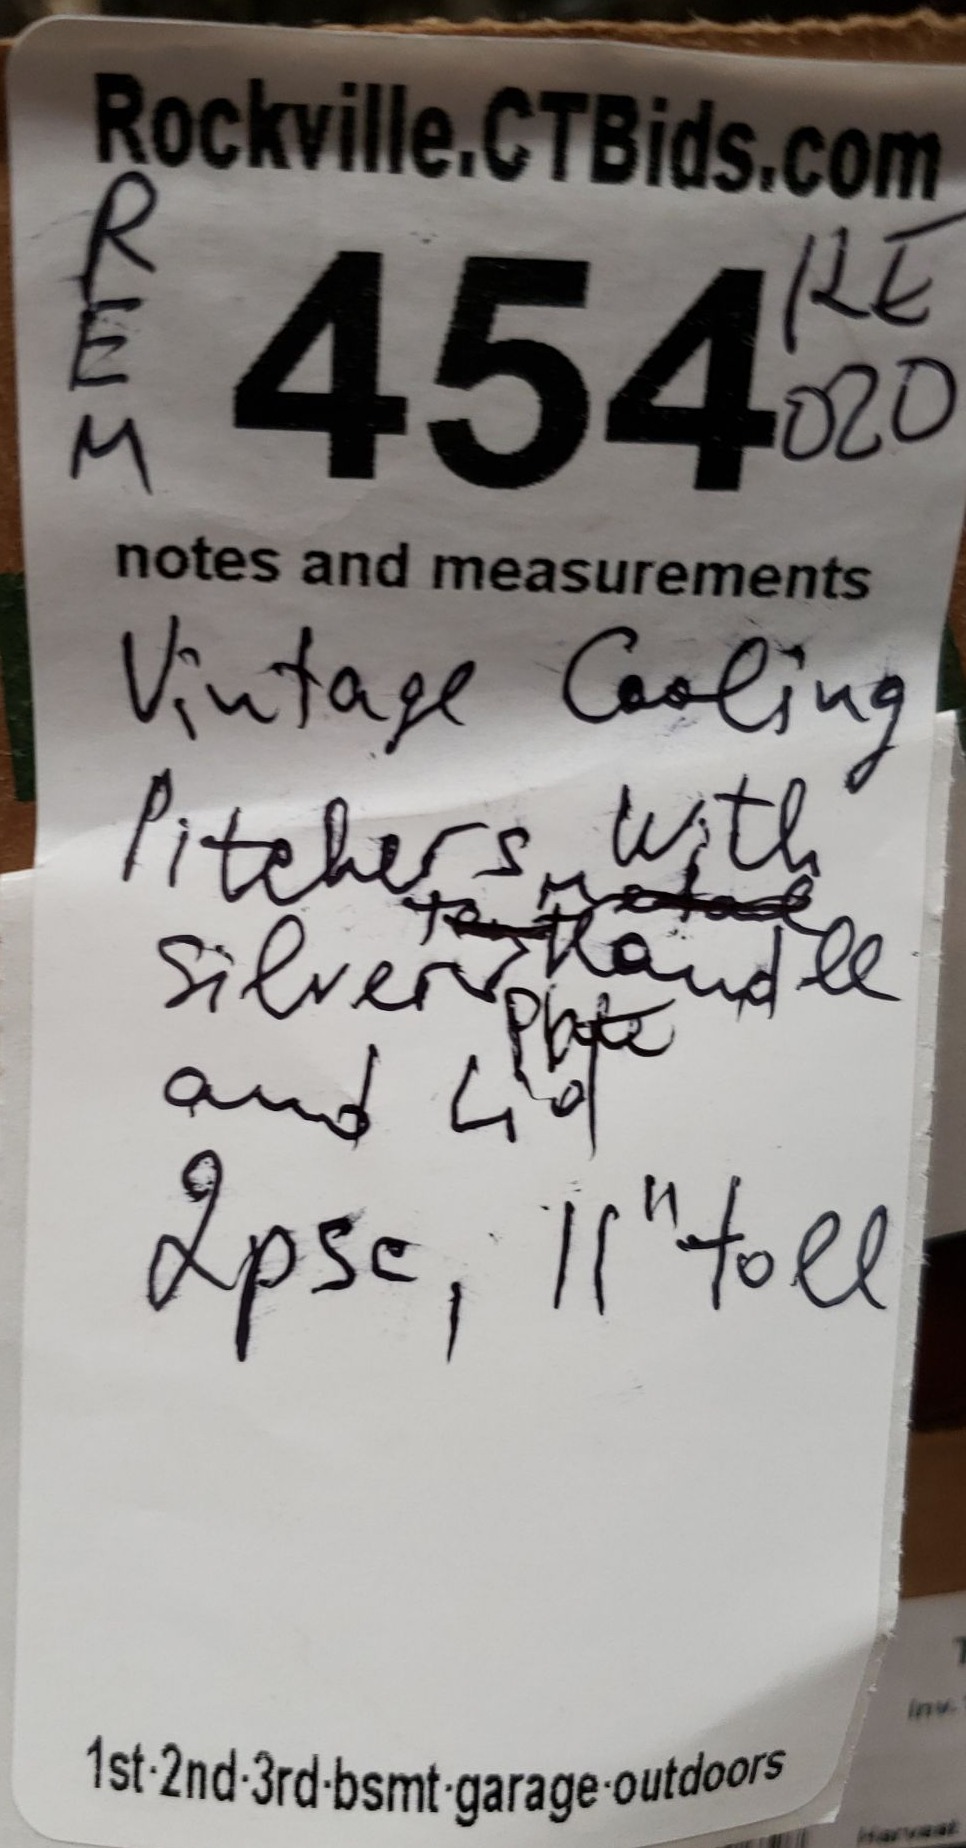 Rockville.CTBids.com
REM
454
KE
020
notes and measurements
Vintage Cooling
Pitchers with
metal
silver Handle
Plate
and Lid
2psc, 11" tall
1st·2nd·3rd·bsmt·garage·outdoors
Inv.
Harvest